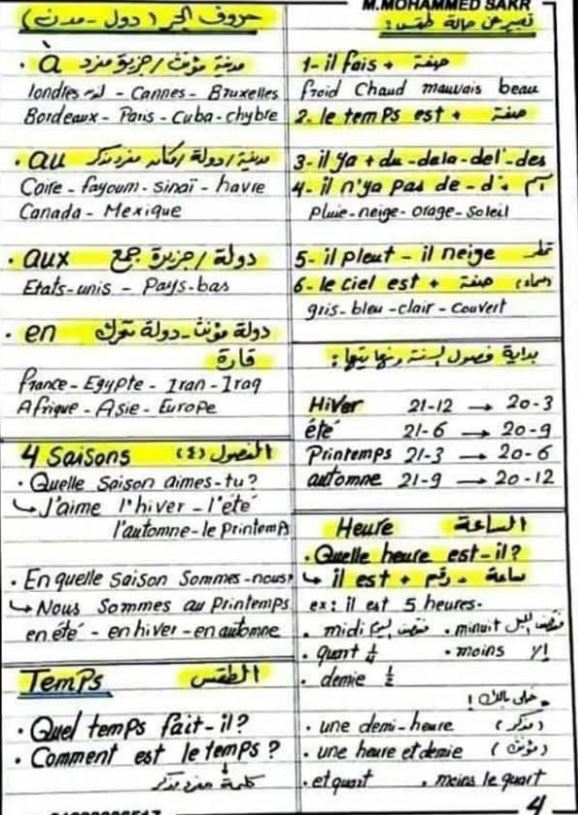 M.MOHAMMED SAKR
حروف الجر ( دول - مدن )
• à مدينة مؤنث / جزيرة مفرد
londres - Cannes - Bruxelles
Bordeaux - Paris - Cuba - chybre
• au مدينة / دولة / مكان مفرد مذكر
Caire - fayoum - sinaï - havre
Canada - Mexique
• aux دولة / جزيرة جمع
Etats-unis - Pays-bas
• en دولة مؤنث - دولة متحرك
قارة
france - Egypte - Iran - Iraq
Afrique - Asie - Europe
4 Saisons الفصول (٤)
• Quelle saison aimes-tu?
↳ J'aime l'hiver - l'été
l'automne - le Printemps
• En quelle saison Sommes-nous?
↳ Nous Sommes au Printemps
en été - en hiver - en automne
Temps الطقس
• Quel temps fait-il?
• Comment est le temps?
كلمة مفرد مذكر
تعبير عن حالة طقس:
1- il fais + صفة
froid Chaud mauvais beau
2. le temps est + صفة
3- il ya + du - dela - del' - des
4- il n'ya pas de - d' + اسم
Pluie - neige - orage - Soleil
5- il pleut - il neige تمطر
6- le ciel est + صفة (سماء)
gris - bleu - clair - couvert
بداية فصول السنة ونهايتها:
Hiver 21-12 → 20-3
été 21-6 → 20-9
Printemps 21-3 → 20-6
automne 21-9 → 20-12
Heure الساعة
• Quelle heure est-il?
↳ il est + رقم - ساعة
ex: il est 5 heures.
• midi منتصف اليوم • minuit منتصف الليل
• quart ¼ • moins إلا
• demie ½
خلى بالك!
• une demi-heure (مذكر)
• une heure et demie (مؤنث)
• et quart • moins le quart
4